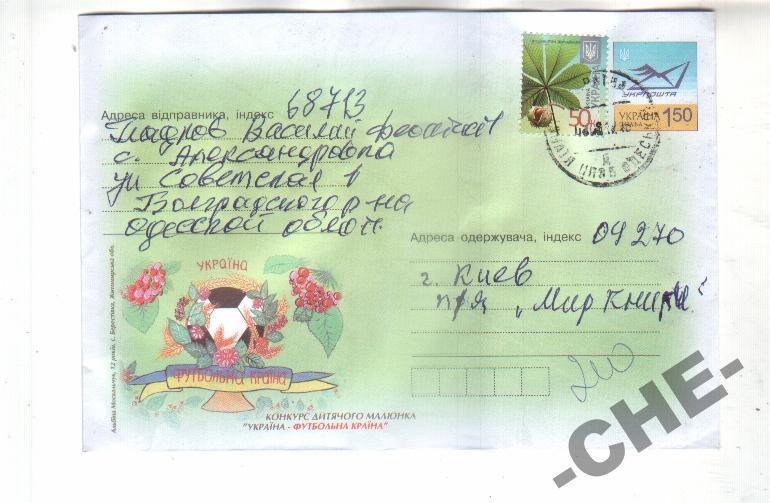 50
УКРАЇНА
УКРПОШТА
УКРАЇНА
1.50
Адреса відправника, індекс 68713
Василий
с. Александровка
ул Советская 1
Болградского р-на
Одесской област.
Адреса одержувача, індекс 04270
г. Киев
п/я „Мир Книги"
УКРАЇНА
ФУТБОЛЬНА КРАЇНА
КОНКУРС ДИТЯЧОГО МАЛЮНКА
"УКРАЇНА - ФУТБОЛЬНА КРАЇНА"
Альбіна Москальчук, 12 років, с. Берестянка, Житомирська обл.
-CHE-